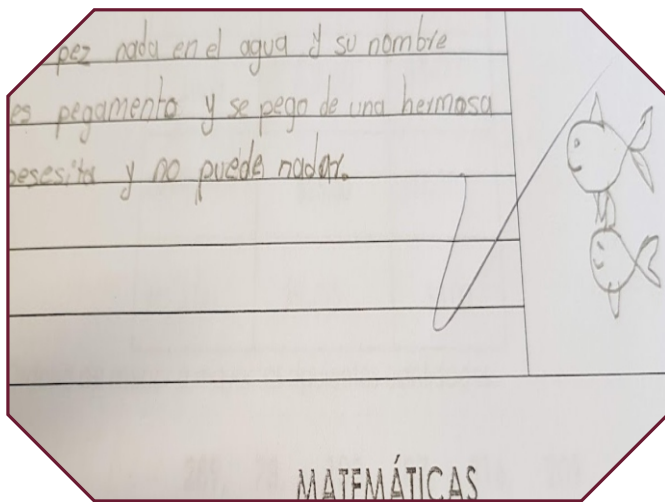 pez nada en el agua y su nombre
es pegamento y se pego de una hermosa
pesesita y no puede nadar.
MATEMÁTICAS